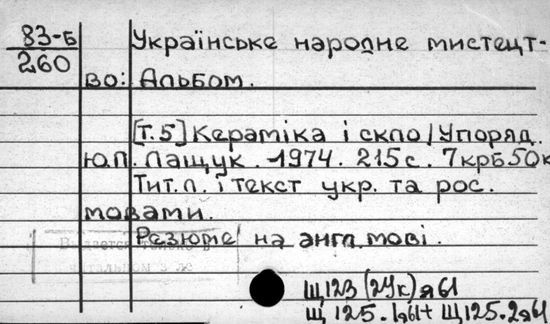 83-Б
260
Українське народне мистецт-
во: Альбом.
[Т.5] Кераміка і скло / Упоряд.
Ю.П. Лащук. 1974. 215 с. 7крб50к
Тит.л. і текст укр. та рос.
мовами.
Резюме на англ мові.
Щ123(2Ук)я61
Щ125.1я61+Щ125.2я61